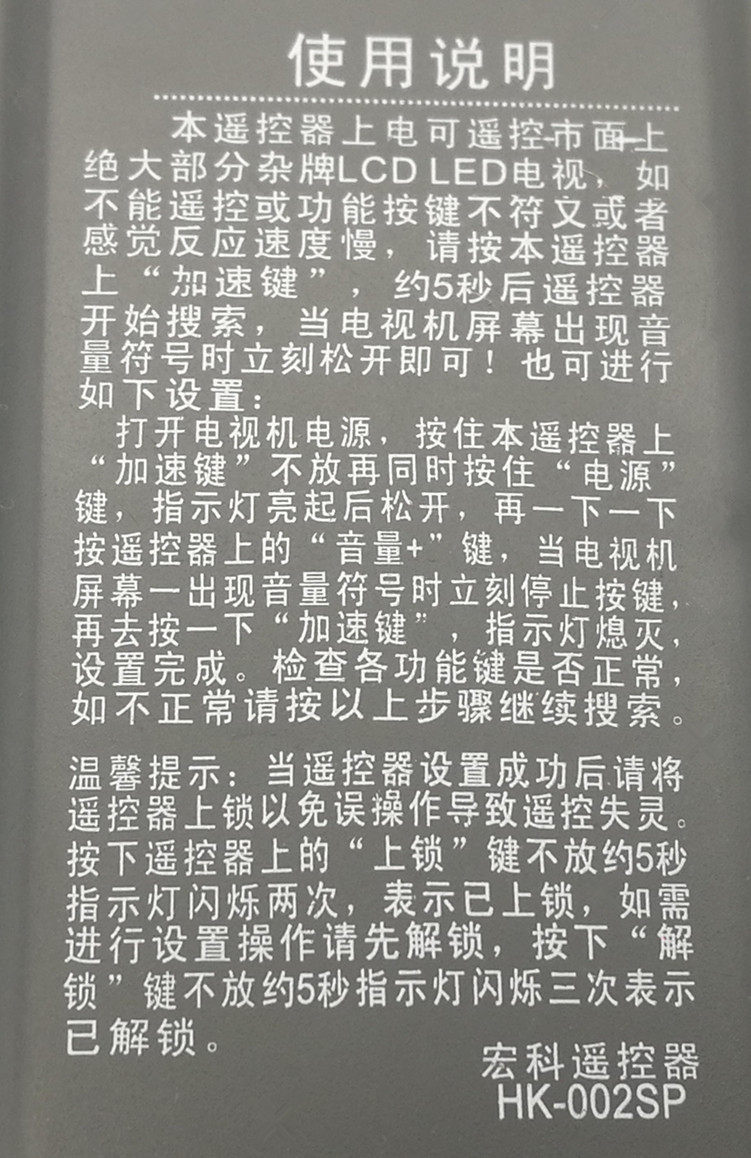 使用说明
本遥控器上电可遥控市面上
绝大部分杂牌LCD LED电视，如
不能遥控或功能按键不符又或者
感觉反应速度慢，请按本遥控器
上“加速键”，约5秒后遥控器
开始搜索，当电视机屏幕出现音
量符号时立刻松开即可！也可进行
如下设置：
打开电视机电源，按住本遥控器上
“加速键”不放再同时按住“电源”
键，指示灯亮起后松开，再一下一下
按遥控器上的“音量+”键，当电视机
屏幕一出现音量符号时立刻停止按键，
再去按一下“加速键”，指示灯熄灭，
设置完成。检查各功能键是否正常，
如不正常请按以上步骤继续搜索。
温馨提示：当遥控器设置成功后请将
遥控器上锁以免误操作导致遥控失灵。
按下遥控器上的“上锁”键不放约5秒
指示灯闪烁两次，表示已上锁，如需
进行设置操作请先解锁，按下“解
锁”键不放约5秒指示灯闪烁三次表示
已解锁。
宏科遥控器
HK-002SP